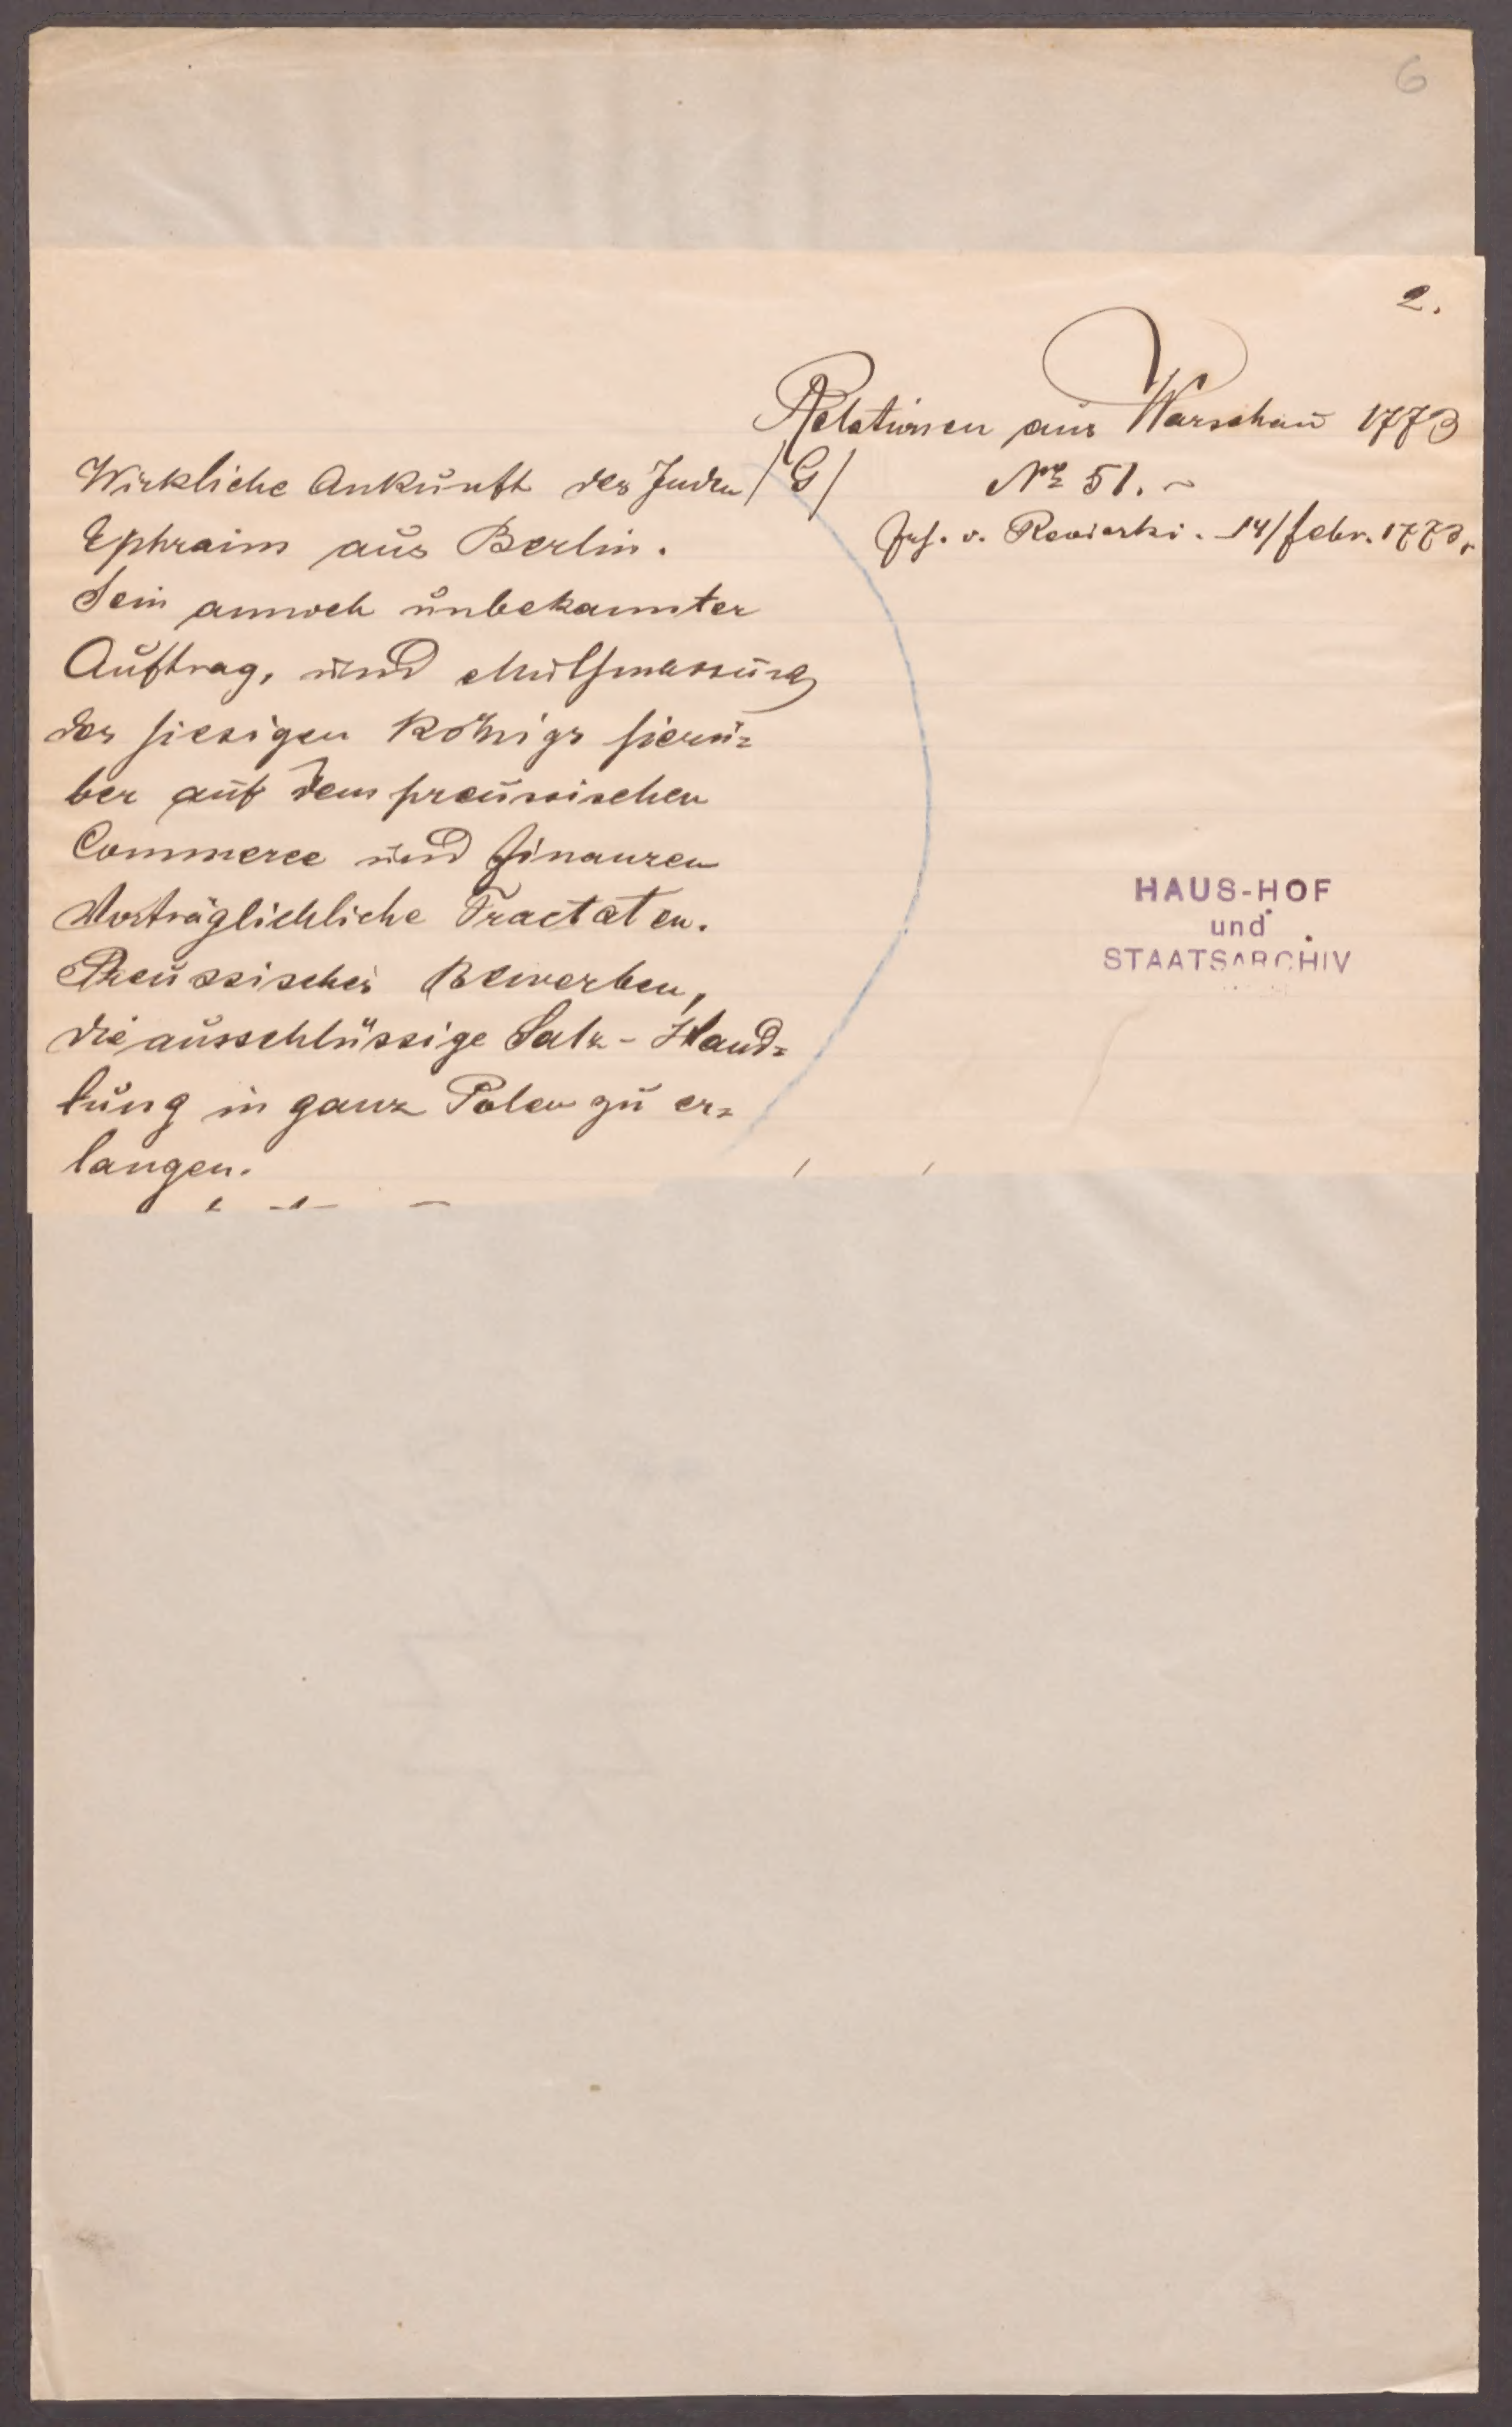 6
2.
Relationen aus Warschau 1773
/G/ Nro 51.
Jos. v. Reviczki. 14/febr. 1773.
Wirkliche Ankunft des Juden
Ephraim aus Berlin.
Sein annoch unbekannter
Auftrag, und Muthmassung
des hiesigen Königs hierü=
ber auf dem preussischen
Commerce und Finanzen
Vorträglichliche Tractaten.
Preussisches Bewerben,
die ausschlüssige Salz-Hand=
lung in ganz Polen zu er=
langen.
HAUS-HOF
und
STAATSARCHIV